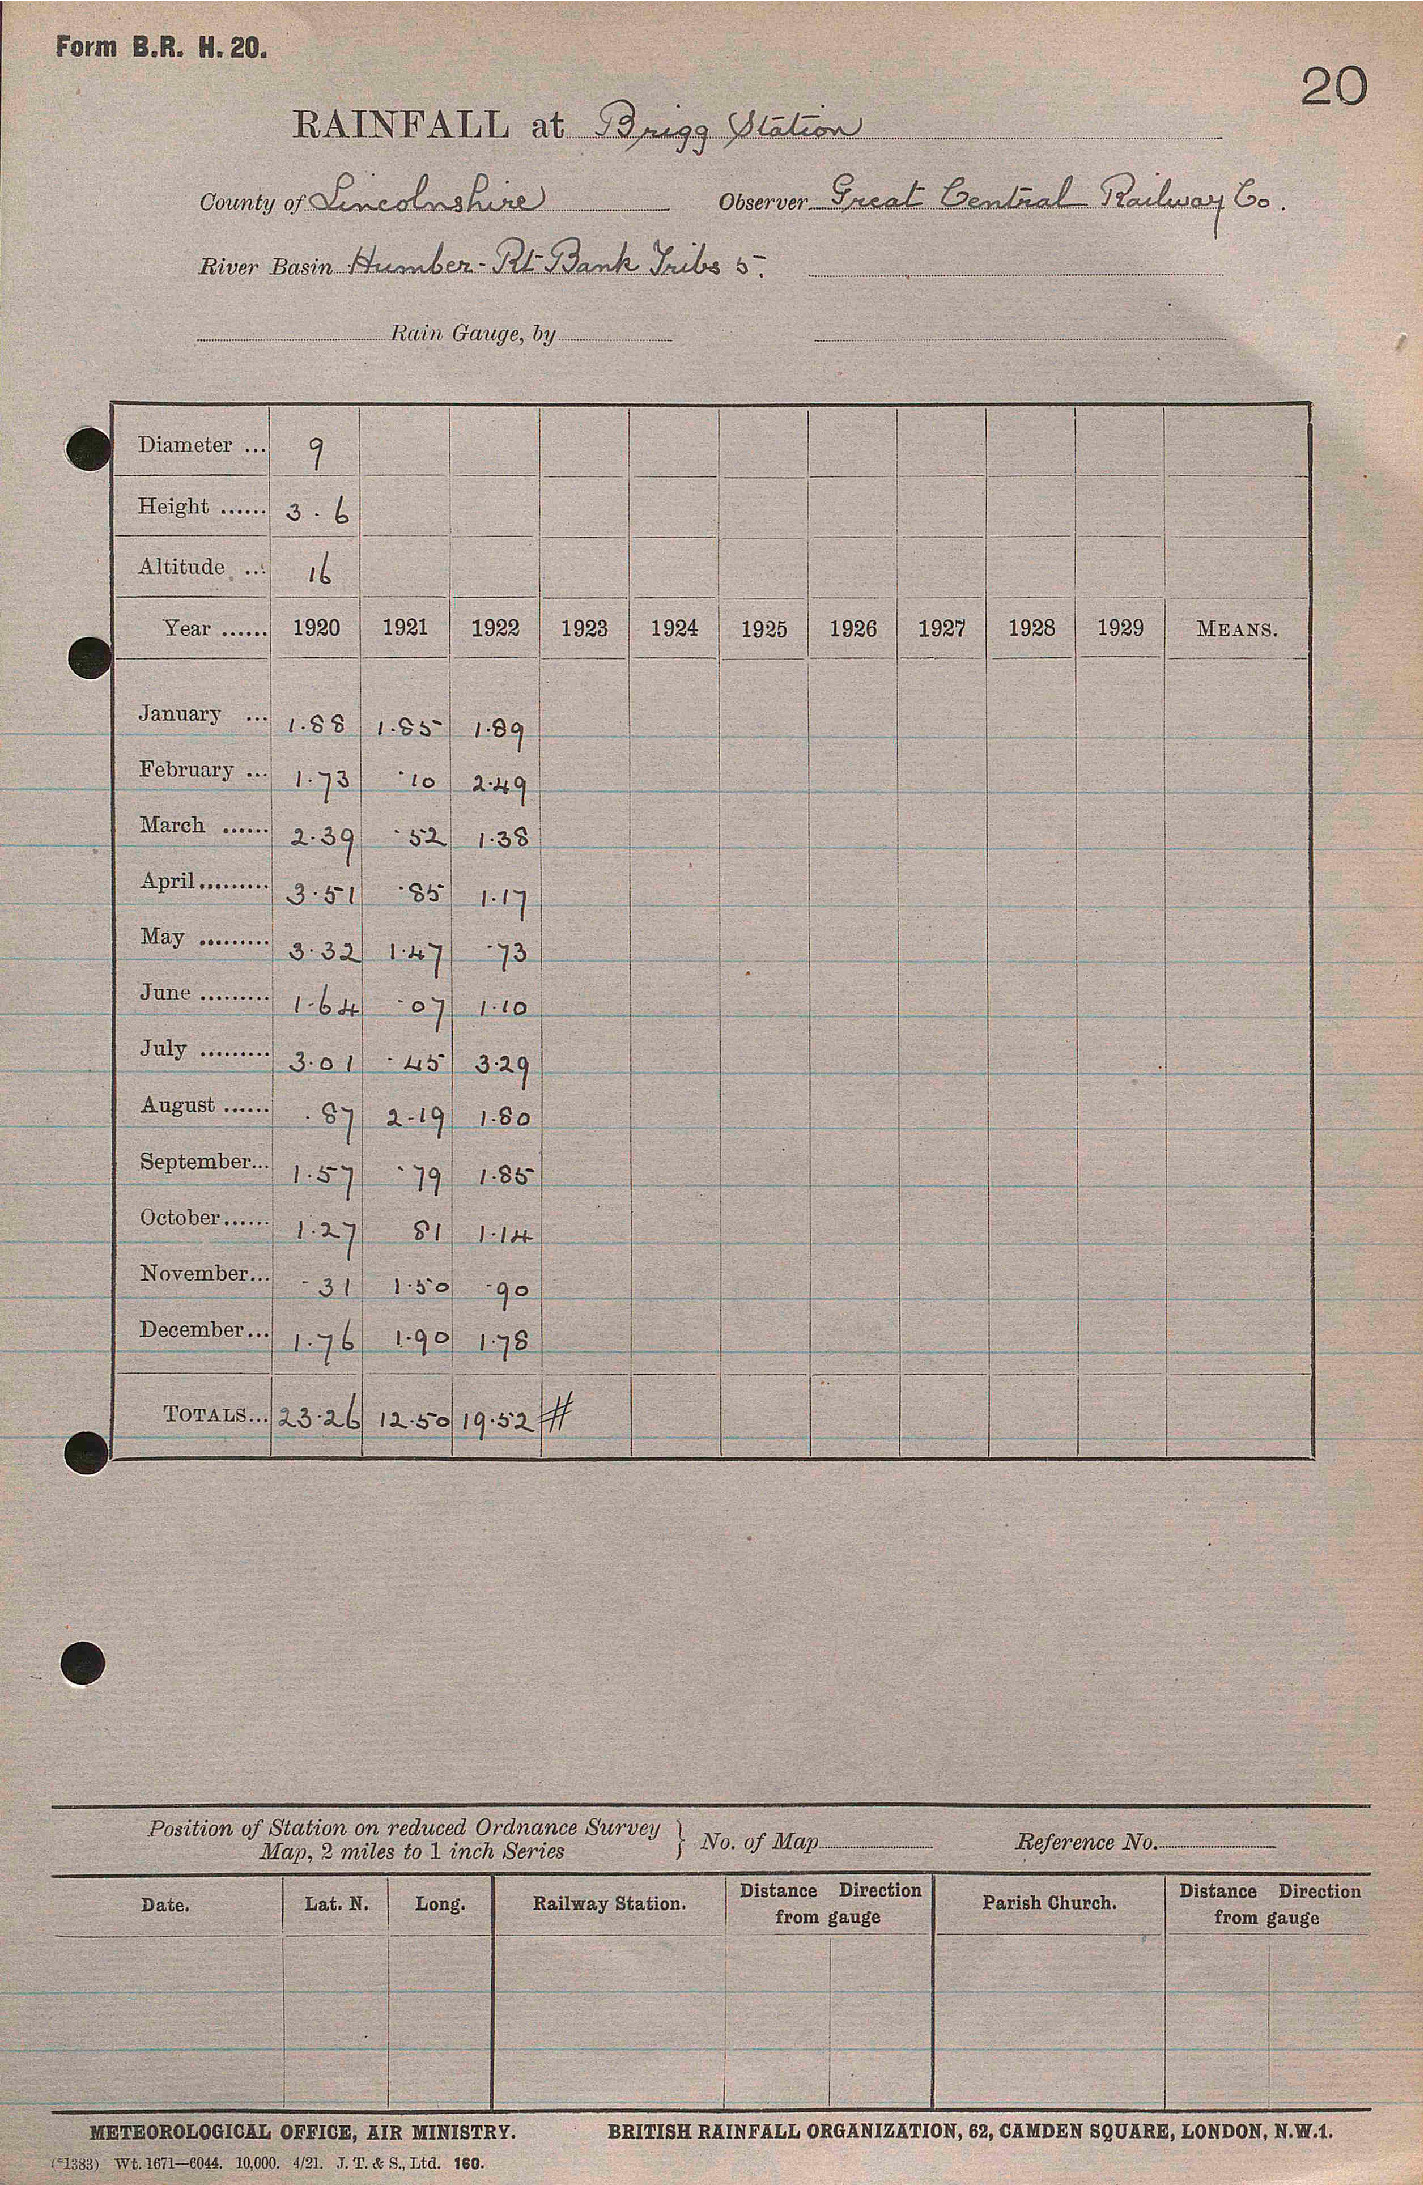 Form B.R. H. 20.
20
RAINFALL at Brigg Station
County of Lincolnshire Observer Great Central Railway Co.
River Basin Humber - Rt Bank Tribs 5.
Rain Gauge, by
Diameter ... 9
Height ...... 3.6
Altitude ... 16
Year ...... 1920 1921 1922 1923 1924 1925 1926 1927 1928 1929 MEANS.
January ... 1.88 1.85 1.89
February ... 1.73 .10 2.49
March ...... 2.39 .52 1.38
April ......... 3.51 .85 1.17
May ......... 3.32 1.47 .73
June ......... 1.64 .07 1.10
July ......... 3.01 .45 3.29
August ...... .87 2.19 1.80
September... 1.57 .79 1.85
October...... 1.27 81 1.14
November... .31 1.50 .90
December... 1.76 1.90 1.78
TOTALS... 23.26 12.50 19.52 #
Position of Station on reduced Ordnance Survey
Map, 2 miles to 1 inch Series } No. of Map Reference No.
Date. Lat. N. Long. Railway Station. Distance Direction from gauge Parish Church. Distance Direction from gauge
METEOROLOGICAL OFFICE, AIR MINISTRY. BRITISH RAINFALL ORGANIZATION, 62, CAMDEN SQUARE, LONDON, N.W.1.
(*1383) Wt. 1671—6044. 10,000. 4/21. J. T. & S., Ltd. 160.